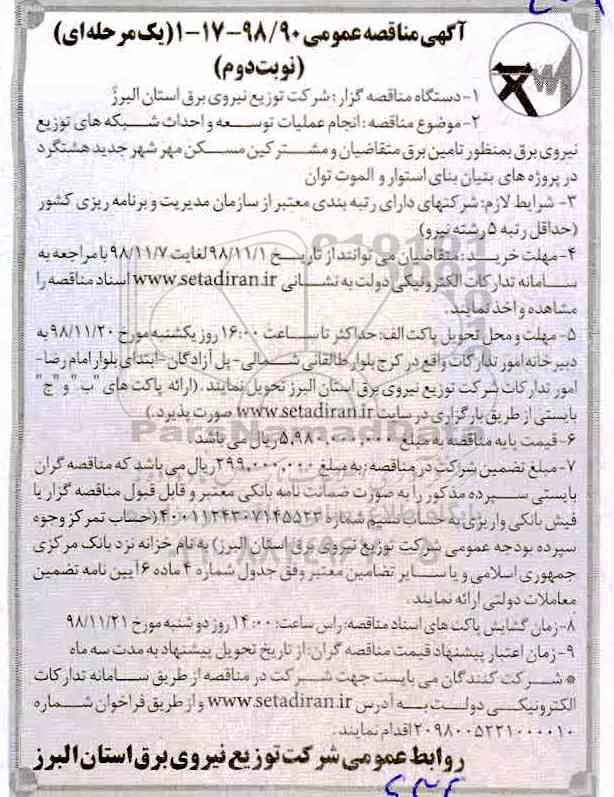 آگهی مناقصه عمومی ۹۸/۹۰-۱۷-۱ (یک مرحله ای)
(نوبت دوم)
۱- دستگاه مناقصه گزار : شرکت توزیع نیروی برق استان البرز
۲- موضوع مناقصه : انجام عملیات توسعه و احداث شبکه های توزیع
نیروی برق بمنظور تامین برق متقاضیان و مشترکین مسکن مهر شهر جدید هشتگرد
در پروژه های بنیان بنای استوار و الموت توان
۳- شرایط لازم: شرکتهای دارای رتبه بندی معتبر از سازمان مدیریت و برنامه ریزی کشور
(حداقل رتبه ۵ رشته نیرو)
۴- مهلت خرید : متقاضیان می توانند از تاریخ ۹۸/۱۱/۱ لغایت ۹۸/۱۱/۷ با مراجعه به
سامانه تدارکات الکترونیکی دولت به نشانی www.setadiran.ir اسناد مناقصه را
مشاهده و اخذ نمایند.
۵- مهلت و محل تحویل پاکت الف: حداکثر تا ساعت ۱۶:۰۰ روز یکشنبه مورخ ۹۸/۱۱/۲۰ به
دبیرخانه امور تدارکات واقع در کرج بلوار طالقانی شمالی- پل آزادگان- ابتدای بلوار امام رضا-
امور تدارکات شرکت توزیع نیروی برق استان البرز تحویل نمایند. (ارائه پاکت های "ب" و "ج"
بایستی از طریق بارگزاری در سایت www.setadiran.ir صورت پذیرد.)
۶- قیمت پایه مناقصه به مبلغ ۵,۹۸۰,۰۰۰,۰۰۰ ریال می باشد.
۷- مبلغ تضمین شرکت در مناقصه : به مبلغ ۲۹۹,۰۰۰,۰۰۰ ریال می باشد که مناقصه گران
بایستی سپرده مذکور را به صورت ضمانت نامه بانکی معتبر و قابل قبول مناقصه گزار یا
فیش بانکی واریزی به حساب سیم شماره ۴۰۰۱۱۲۴۳۰۷۱۴۵۵۲۳ (حساب تمرکز وجوه
سپرده بودجه عمومی شرکت توزیع نیروی برق استان البرز) به نام خزانه نزد بانک مرکزی
جمهوری اسلامی و یا سایر تضامین معتبر وفق جدول شماره ۴ ماده ۶ آیین نامه تضمین
معاملات دولتی ارائه نمایند.
۸- زمان گشایش پاکت های اسناد مناقصه: راس ساعت: ۱۴:۰۰ روز دوشنبه مورخ ۹۸/۱۱/۲۱
۹- زمان اعتبار پیشنهاد قیمت مناقصه گران: از تاریخ تحویل پیشنهاد به مدت سه ماه
* شرکت کنندگان می بایست جهت شرکت در مناقصه از طریق سامانه تدارکات
الکترونیکی دولت به آدرس www.setadiran.ir و از طریق فراخوان شماره
۲۰۹۸۰۰۵۲۲۱۰۰۰۰۱۰ اقدام نمایند.
روابط عمومی شرکت توزیع نیروی برق استان البرز